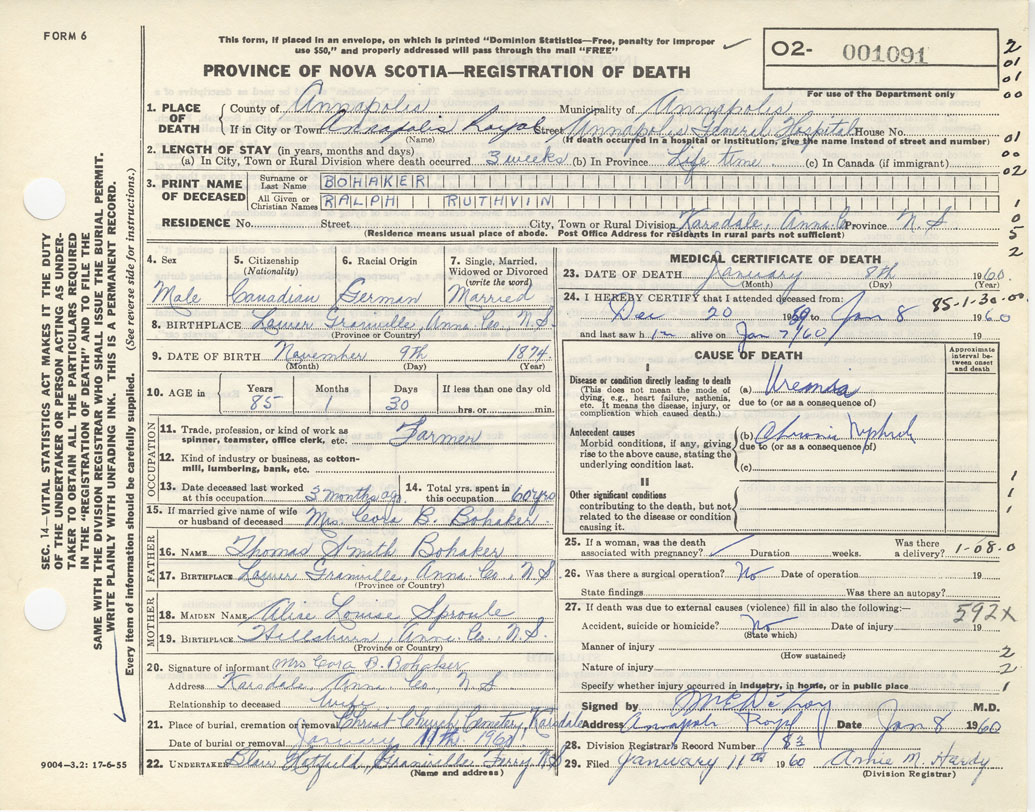 FORM 6
This form, if placed in an envelope, on which is printed "Dominion Statistics—Free, penalty for improper
use $50," and properly addressed will pass through the mail "FREE"
O2- 001091
For use of the Department only
PROVINCE OF NOVA SCOTIA—REGISTRATION OF DEATH
2
01
01
00
1. PLACE OF DEATH
County of Annapolis Municipality of Annapolis
If in City or Town Annapolis Royal Street Annapolis General Hospital House No.
(Name) (If death occurred in a hospital or institution, give the name instead of street and number)
01
00
02
2. LENGTH OF STAY (in years, months and days)
(a) In City, Town or Rural Division where death occurred 3 weeks (b) In Province Life time (c) In Canada (if immigrant)
3. PRINT NAME OF DECEASED
Surname or Last Name BOHAKER
All Given or Christian Names RALPH RUTHVIN
RESIDENCE No. Street City, Town or Rural Division Karsdale, Anna. Co. Province N. S
(Residence means usual place of abode. Post Office Address for residents in rural parts not sufficient)
1
0
5
2
SEC. 14—VITAL STATISTICS ACT MAKES IT THE DUTY
OF THE UNDERTAKER OR PERSON ACTING AS UNDER-
TAKER TO OBTAIN ALL THE PARTICULARS REQUIRED
IN THE "REGISTRATION OF DEATH" AND TO FILE THE
SAME WITH THE DIVISION REGISTRAR WHO SHALL ISSUE THE BURIAL PERMIT.
WRITE PLAINLY WITH UNFADING INK. THIS IS A PERMANENT RECORD.
Every item of information should be carefully supplied. (See reverse side for instructions.)
4. Sex
Male
5. Citizenship
(Nationality)
Canadian
6. Racial Origin
German
7. Single, Married,
Widowed or Divorced
(write the word)
Married
8. BIRTHPLACE Lower Granville, Anna. Co., N. S
(Province or Country)
9. DATE OF BIRTH November 9th 1874
(Month) (Day) (Year)
10. AGE in
Years Months Days If less than one day old
85 1 30 hrs. or min.
OCCUPATION
11. Trade, profession, or kind of work as
spinner, teamster, office clerk, etc. Farmer
12. Kind of industry or business, as cotton-
mill, lumbering, bank, etc.
13. Date deceased last worked
at this occupation 3 months ago
14. Total yrs. spent in
this occupation 60 yrs
15. If married give name of wife
or husband of deceased Mrs. Cora B. Bohaker
FATHER
16. NAME Thomas Smith Bohaker
17. BIRTHPLACE Lower Granville, Anna. Co., N. S
(Province or Country)
MOTHER
18. MAIDEN NAME Alice Louise Sproule
19. BIRTHPLACE Hillsburn, Anna. Co. N. S.
(Province or Country)
20. Signature of informant Mrs Cora B. Bohaker
Address Karsdale, Anna. Co., N. S
Relationship to deceased Wife
21. Place of burial, cremation or removal Christ Church Cemetery, Karsdale
Date of burial or removal January 11th, 1960
22. UNDERTAKER Granville Ferry N.S
(Name and address)
9004—3.2: 17-6-55
MEDICAL CERTIFICATE OF DEATH
23. DATE OF DEATH January 8th 1960.
(Month) (Day) (Year)
24. I HEREBY CERTIFY that I attended deceased from:
85-1-30-00
Dec 20 1959 to Jan 8 1960
and last saw h im alive on Jan 7/60 19
CAUSE OF DEATH
Approximate
interval be-
tween onset
and death
I
Disease or condition directly leading to death
(This does not mean the mode of
dying, e.g., heart failure, asthenia,
etc. It means the disease, injury, or
complication which caused death.)
(a) Uremia
due to (or as a consequence of)
Antecedent causes
Morbid conditions, if any, giving
rise to the above cause, stating the
underlying condition last.
(b) Chronic
due to (or as a consequence of)
(c)
II
Other significant conditions
contributing to the death, but not
related to the disease or condition
causing it.
1
1
1
25. If a woman, was the death
associated with pregnancy? Duration weeks. Was there
a delivery? 1-08-0
26. Was there a surgical operation? No Date of operation 19
State findings Was there an autopsy?
27. If death was due to external causes (violence) fill in also the following:—
592X
Accident, suicide or homicide? No Date of injury 19
(State which)
Manner of injury 2
(How sustained)
Nature of injury 2
Specify whether injury occurred in industry, in home, or in public place 1
Signed by M.D.
Address Annapolis Royal Date Jan 8 1960
28. Division Registrar's Record Number 83
29. Filed January 11th 1960 M. Hardy
(Division Registrar)